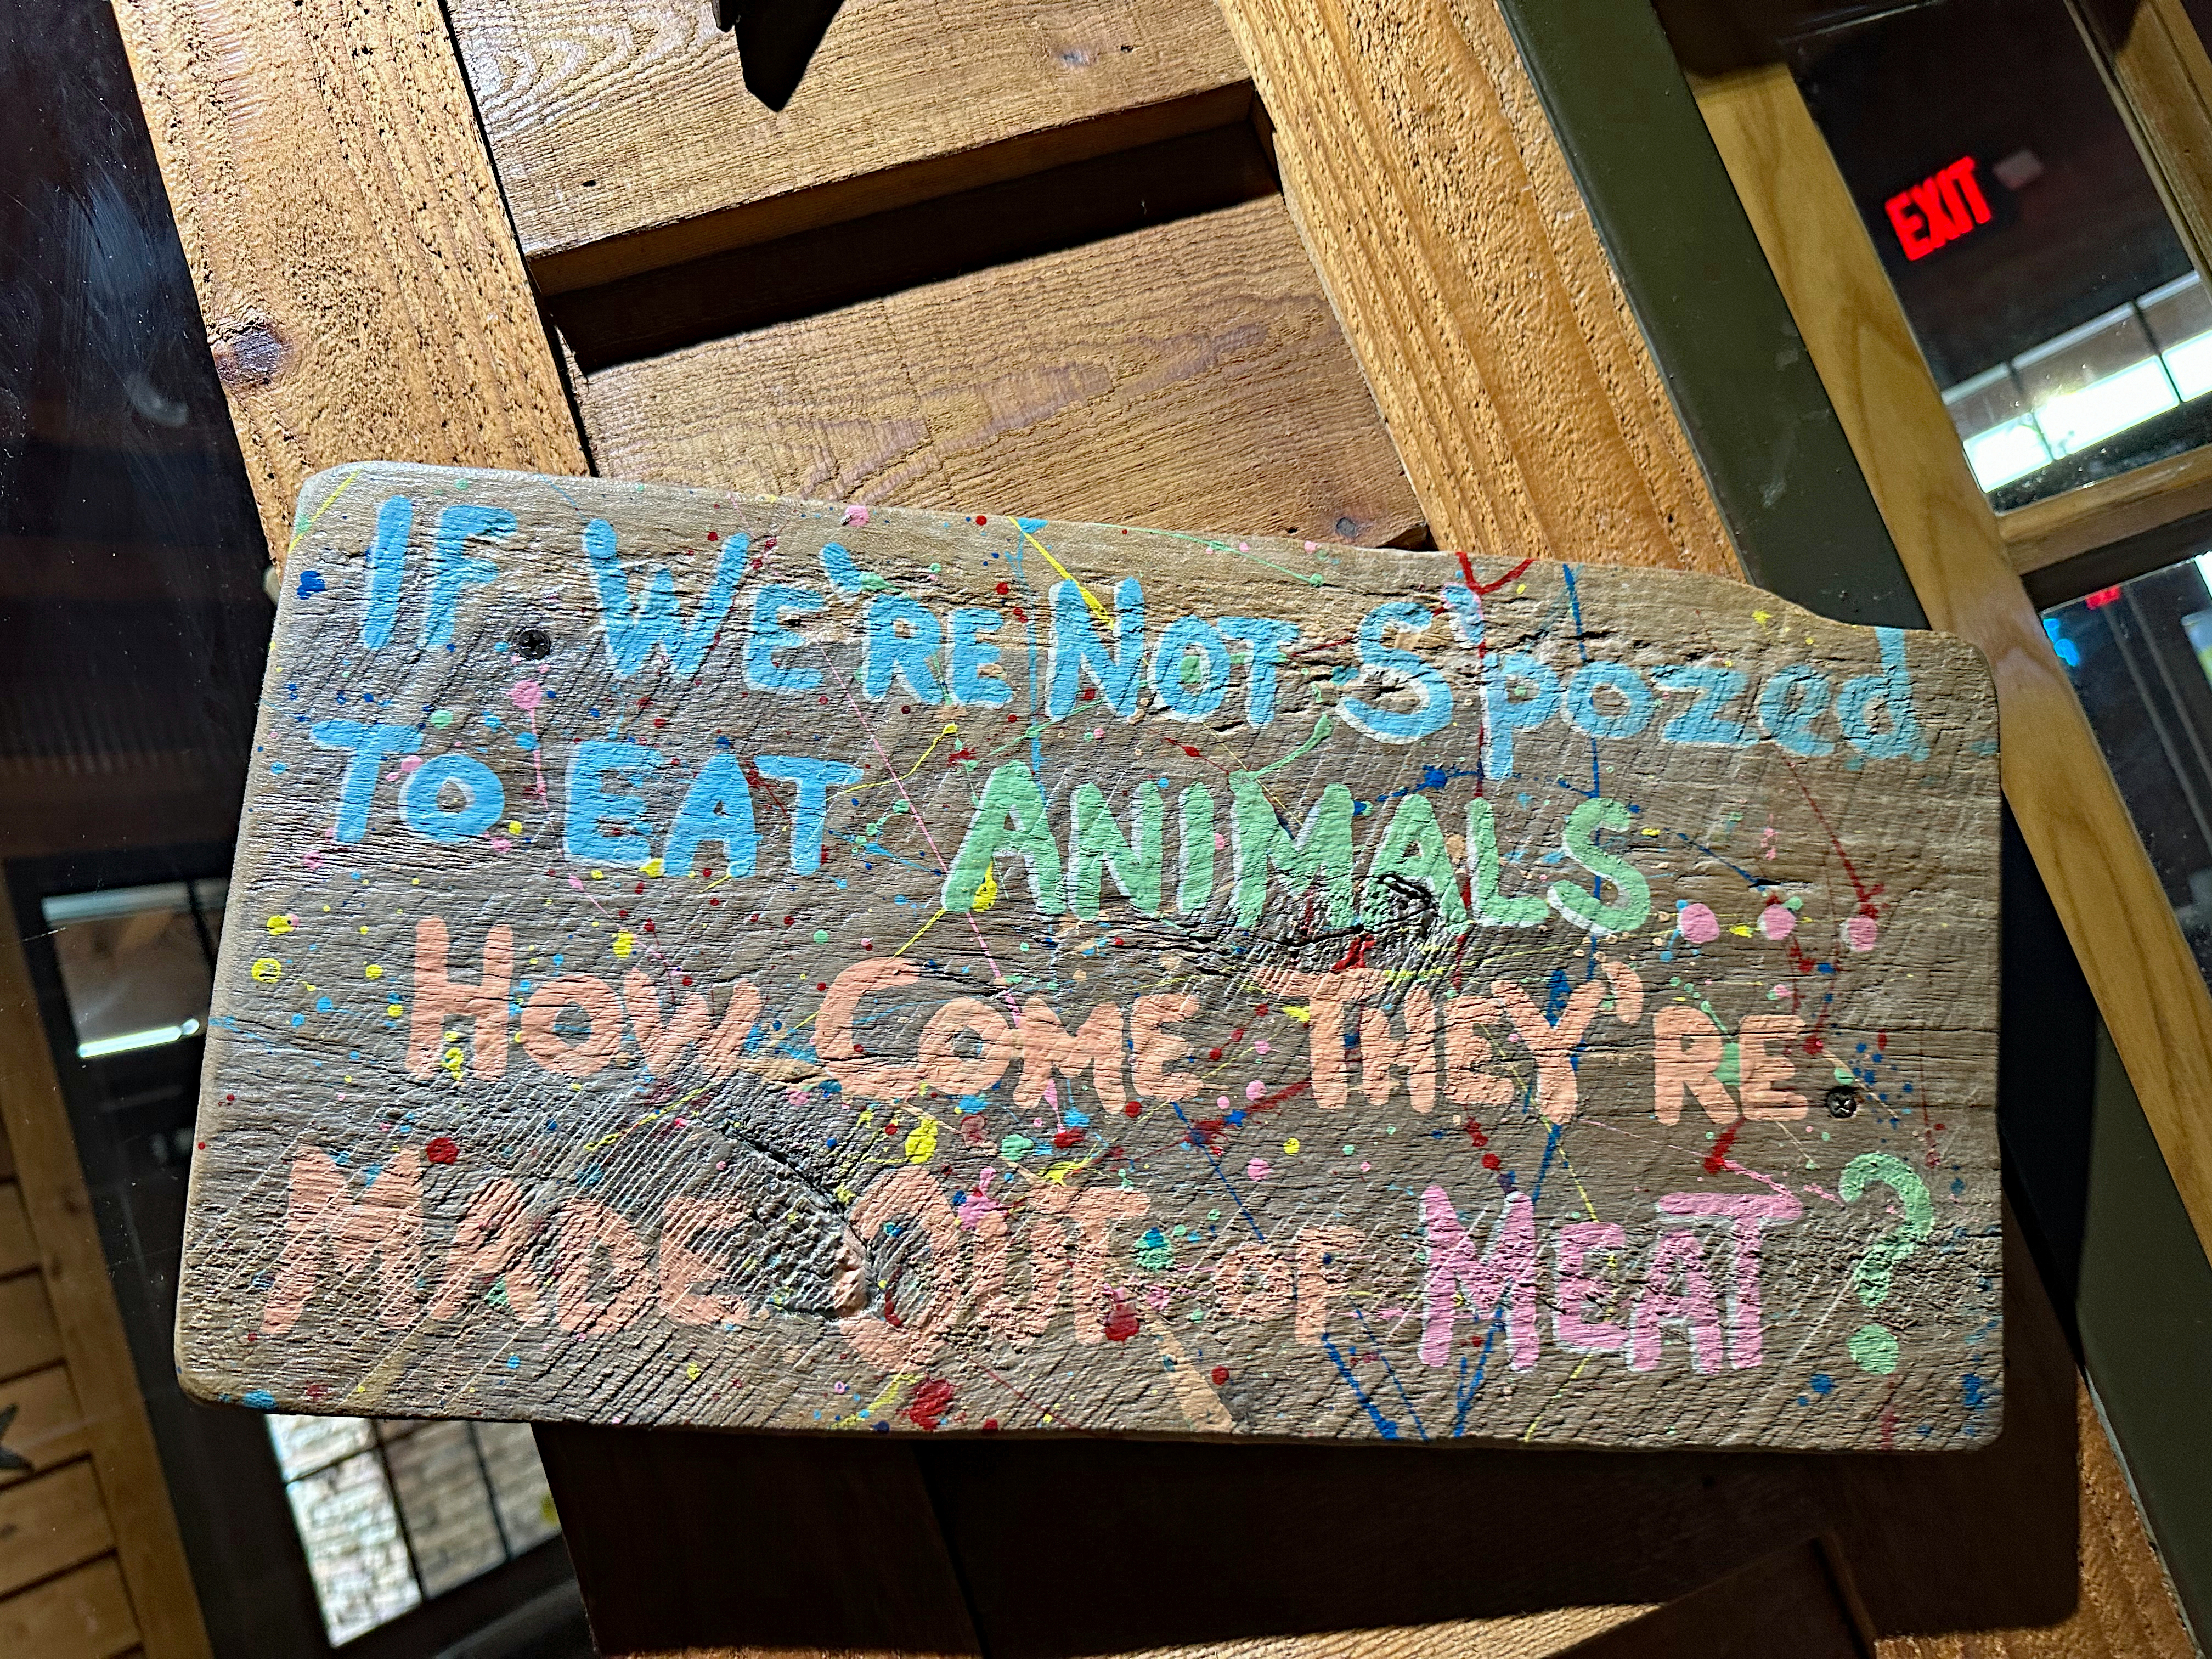 EXIT
IF WE'RE NOT S'pozed
TO EAT ANIMALS...
HOW COME THEY'RE
MADE OUT OF MEAT?